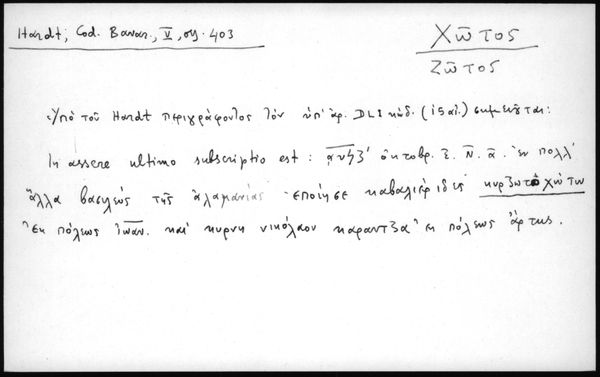 Hardt, Cod. Bavar., V, σημ. 403
Χῶτος
Ζῶτος
Ὑπὸ τοῦ Hardt περιγράφοντος τὸν ὑπ' ἀρ. DLI κώδ. (15 αἰ.) σημειοῦται:
In assere ultimo subscriptio est : ᾳυϟζ' ὀκτοβρ. ε. Ν. α. ἐν πολλ'
ἄλλα βασιλέως τῆς ἀλαμανίας ἐποίησε καβαλιέριδες κυρ ζωτο χώτω
ἐκ πόλεως ἰωαν. καὶ κυρ νικόλαον καραντζα ἐκ πόλεως ἄρτης.